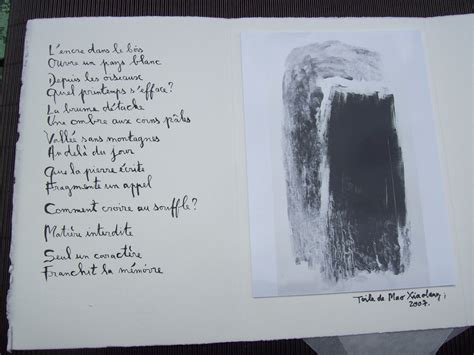 L'encre dans le bois
Ouvre un pays blanc
Depuis les oiseaux
Quel printemps s'efface?
La brume détache
Une ombre aux corps pâles
Vallée sans montagnes
Au delà du jour
Que la pierre écrite
Fragmente un appel
Comment croire au souffle?
Matière interdite
Seul un caractère
Franchit la mémoire
Toile de Mao
2007.